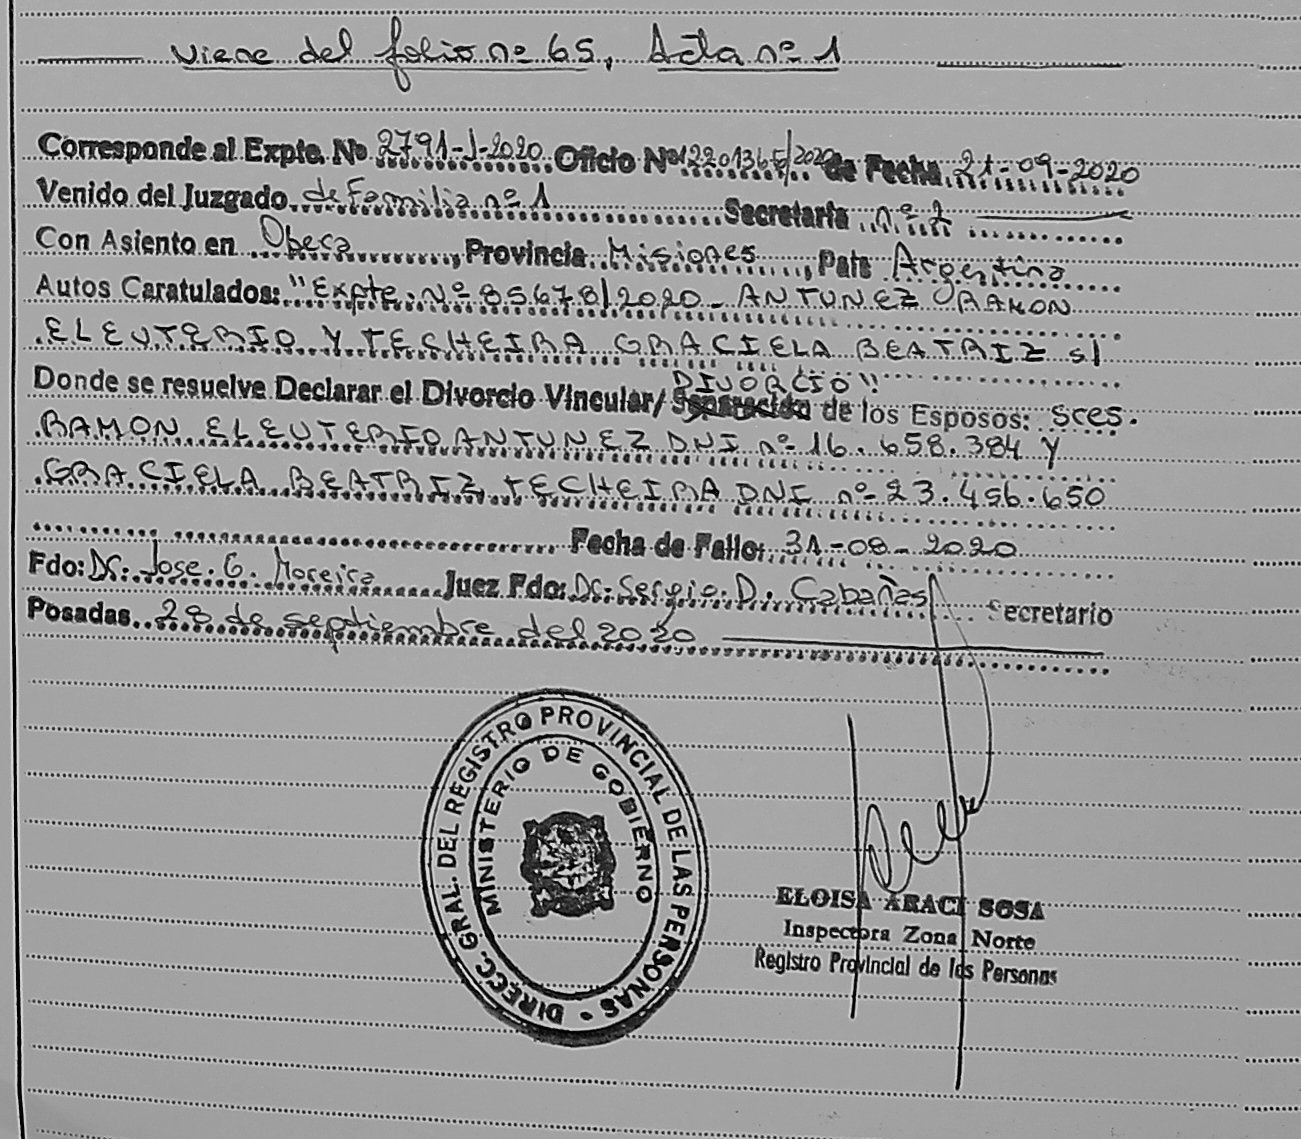 Viene del folio nº 65, Acta nº 1
Corresponde al Expte. Nº 2791-J-2020 Oficio Nº 2201365/2020 de Fecha 21-09-2020
Venido del Juzgado de Familia nº 1 Secretaria nº 2
Con Asiento en Obera, Provincia Misiones, Pais Argentina
Autos Caratulados: "Expte. Nº 85678/2020 - ANTUNEZ RAMON
ELEUTERIO Y TECHEIRA GRACIELA BEATRIZ s/
DIVORCIO"
Donde se resuelve Declarar el Divorcio Vincular/ Separación de los Esposos: sres.
RAMON ELEUTERIO ANTUNEZ DNI nº 16.658.384 y
GRACIELA BEATRIZ TECHEIRA DNI nº 23.456.650
Fecha de Fallo: 31-08-2020
Fdo: Dr. Jose. G. Moreira Juez Fdo: Dr. Sergio. D. Cabañas Secretario
Posadas 28 de septiembre del 2020
DIRECC. GRAL. DEL REGISTRO PROVINCIAL DE LAS PERSONAS -
MINISTERIO DE GOBIERNO
ELOISA ARACI SOSA
Inspectora Zona Norte
Registro Provincial de las Personas